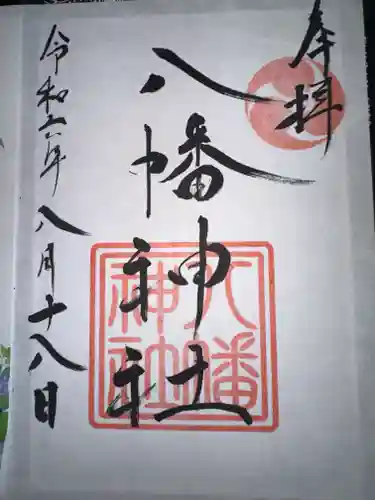 奉拝
八幡神社
八幡
神社
令和六年八月十八日